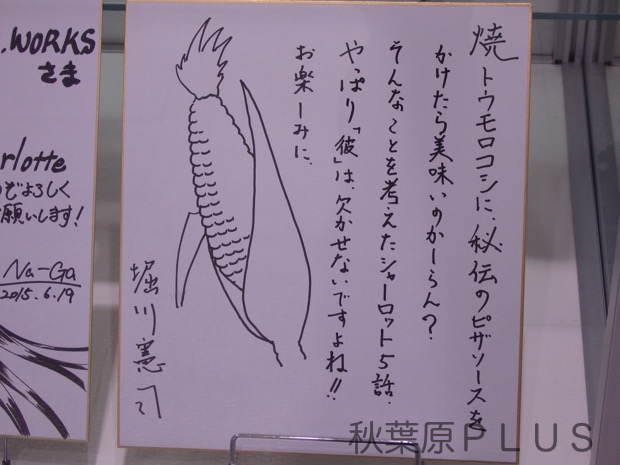 焼トウモロコシに、秘伝のピザソースを
かけたら美味いのかしらん?
そんなことを考えたシャーロット5話.
やっぱり「彼」は、欠かせないですよね!!
お楽しみに、
堀川憲司
.WORKS
さま
rlotte
ぞよろしく
願いします!
Na-Ga
2015.6.19
秋葉原PLUS